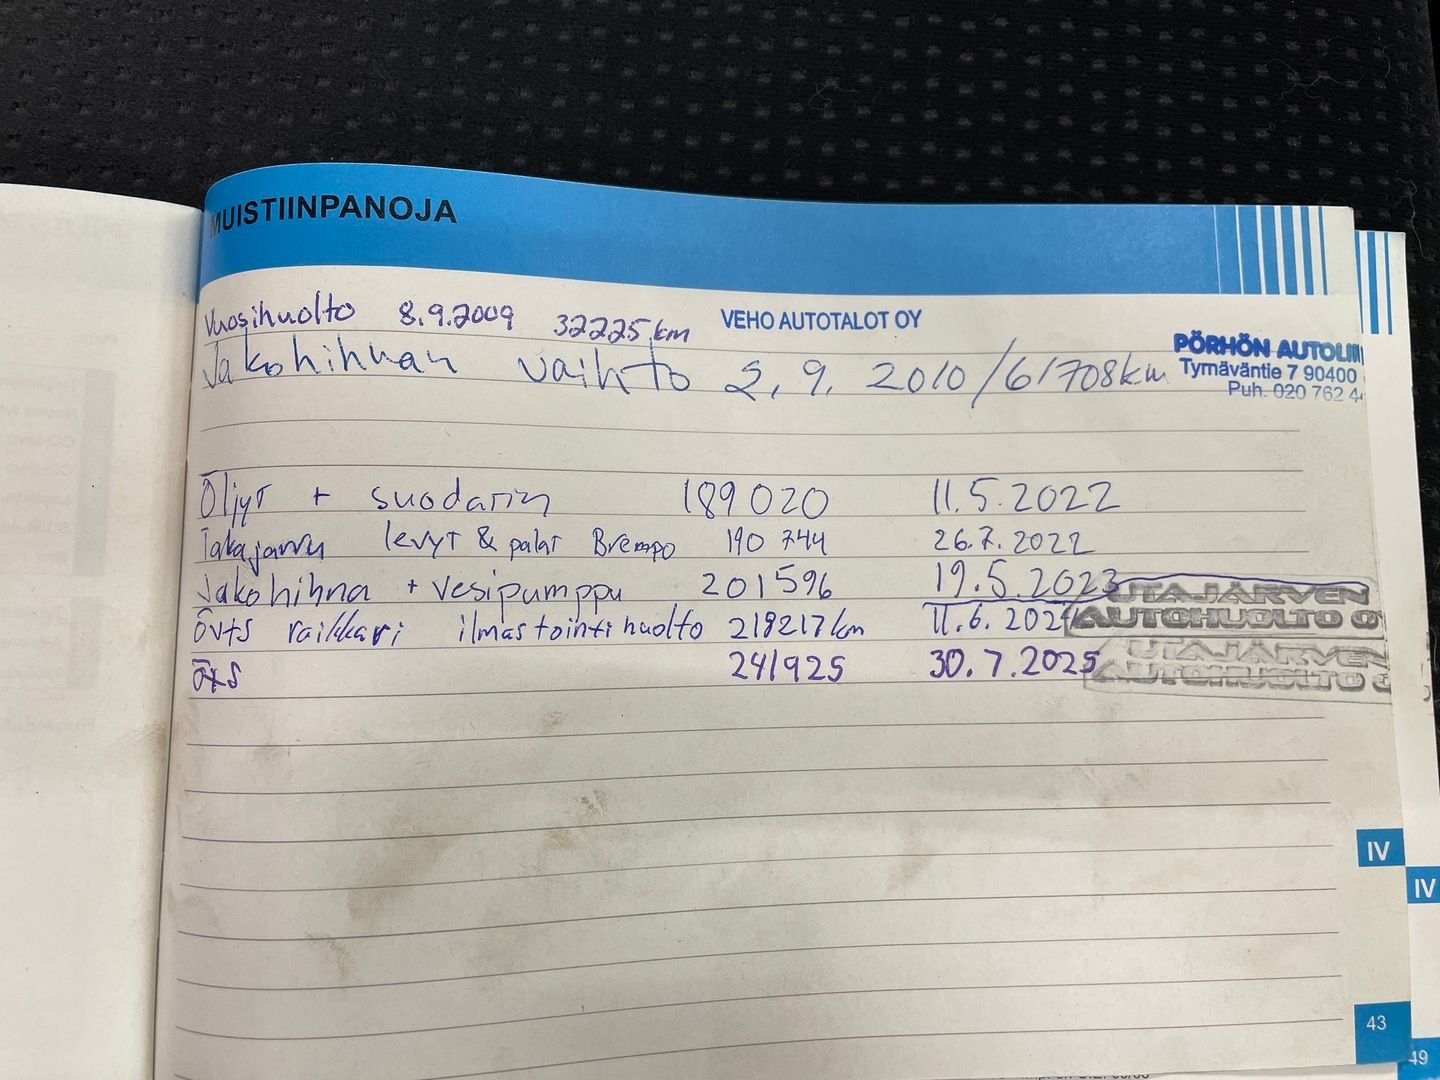 MUISTIINPANOJA
Vuosihuolto 8.9.2009 32225 km VEHO AUTOTALOT OY
Jakohihnan vaihto 2.9. 2010/61708km
PÖRHÖN AUTOLII
Tyrnäväntie 7 90400
Puh. 020 762 4
Öljyt + suodatin 189020 11.5.2022
Takajarru levyt & palat Brempo 190744 26.7.2022
Jakohihna + vesipumppu 201596 19.5.2023
UTAJÄRVEN
AUTOHUOLTO O
övts raikkari ilmastointihuolto 218217km 11.6.202
öxs 241925 30.7.2025
UTAJÄRVEN
AUTOHUOLTO
IV
IV
43
49